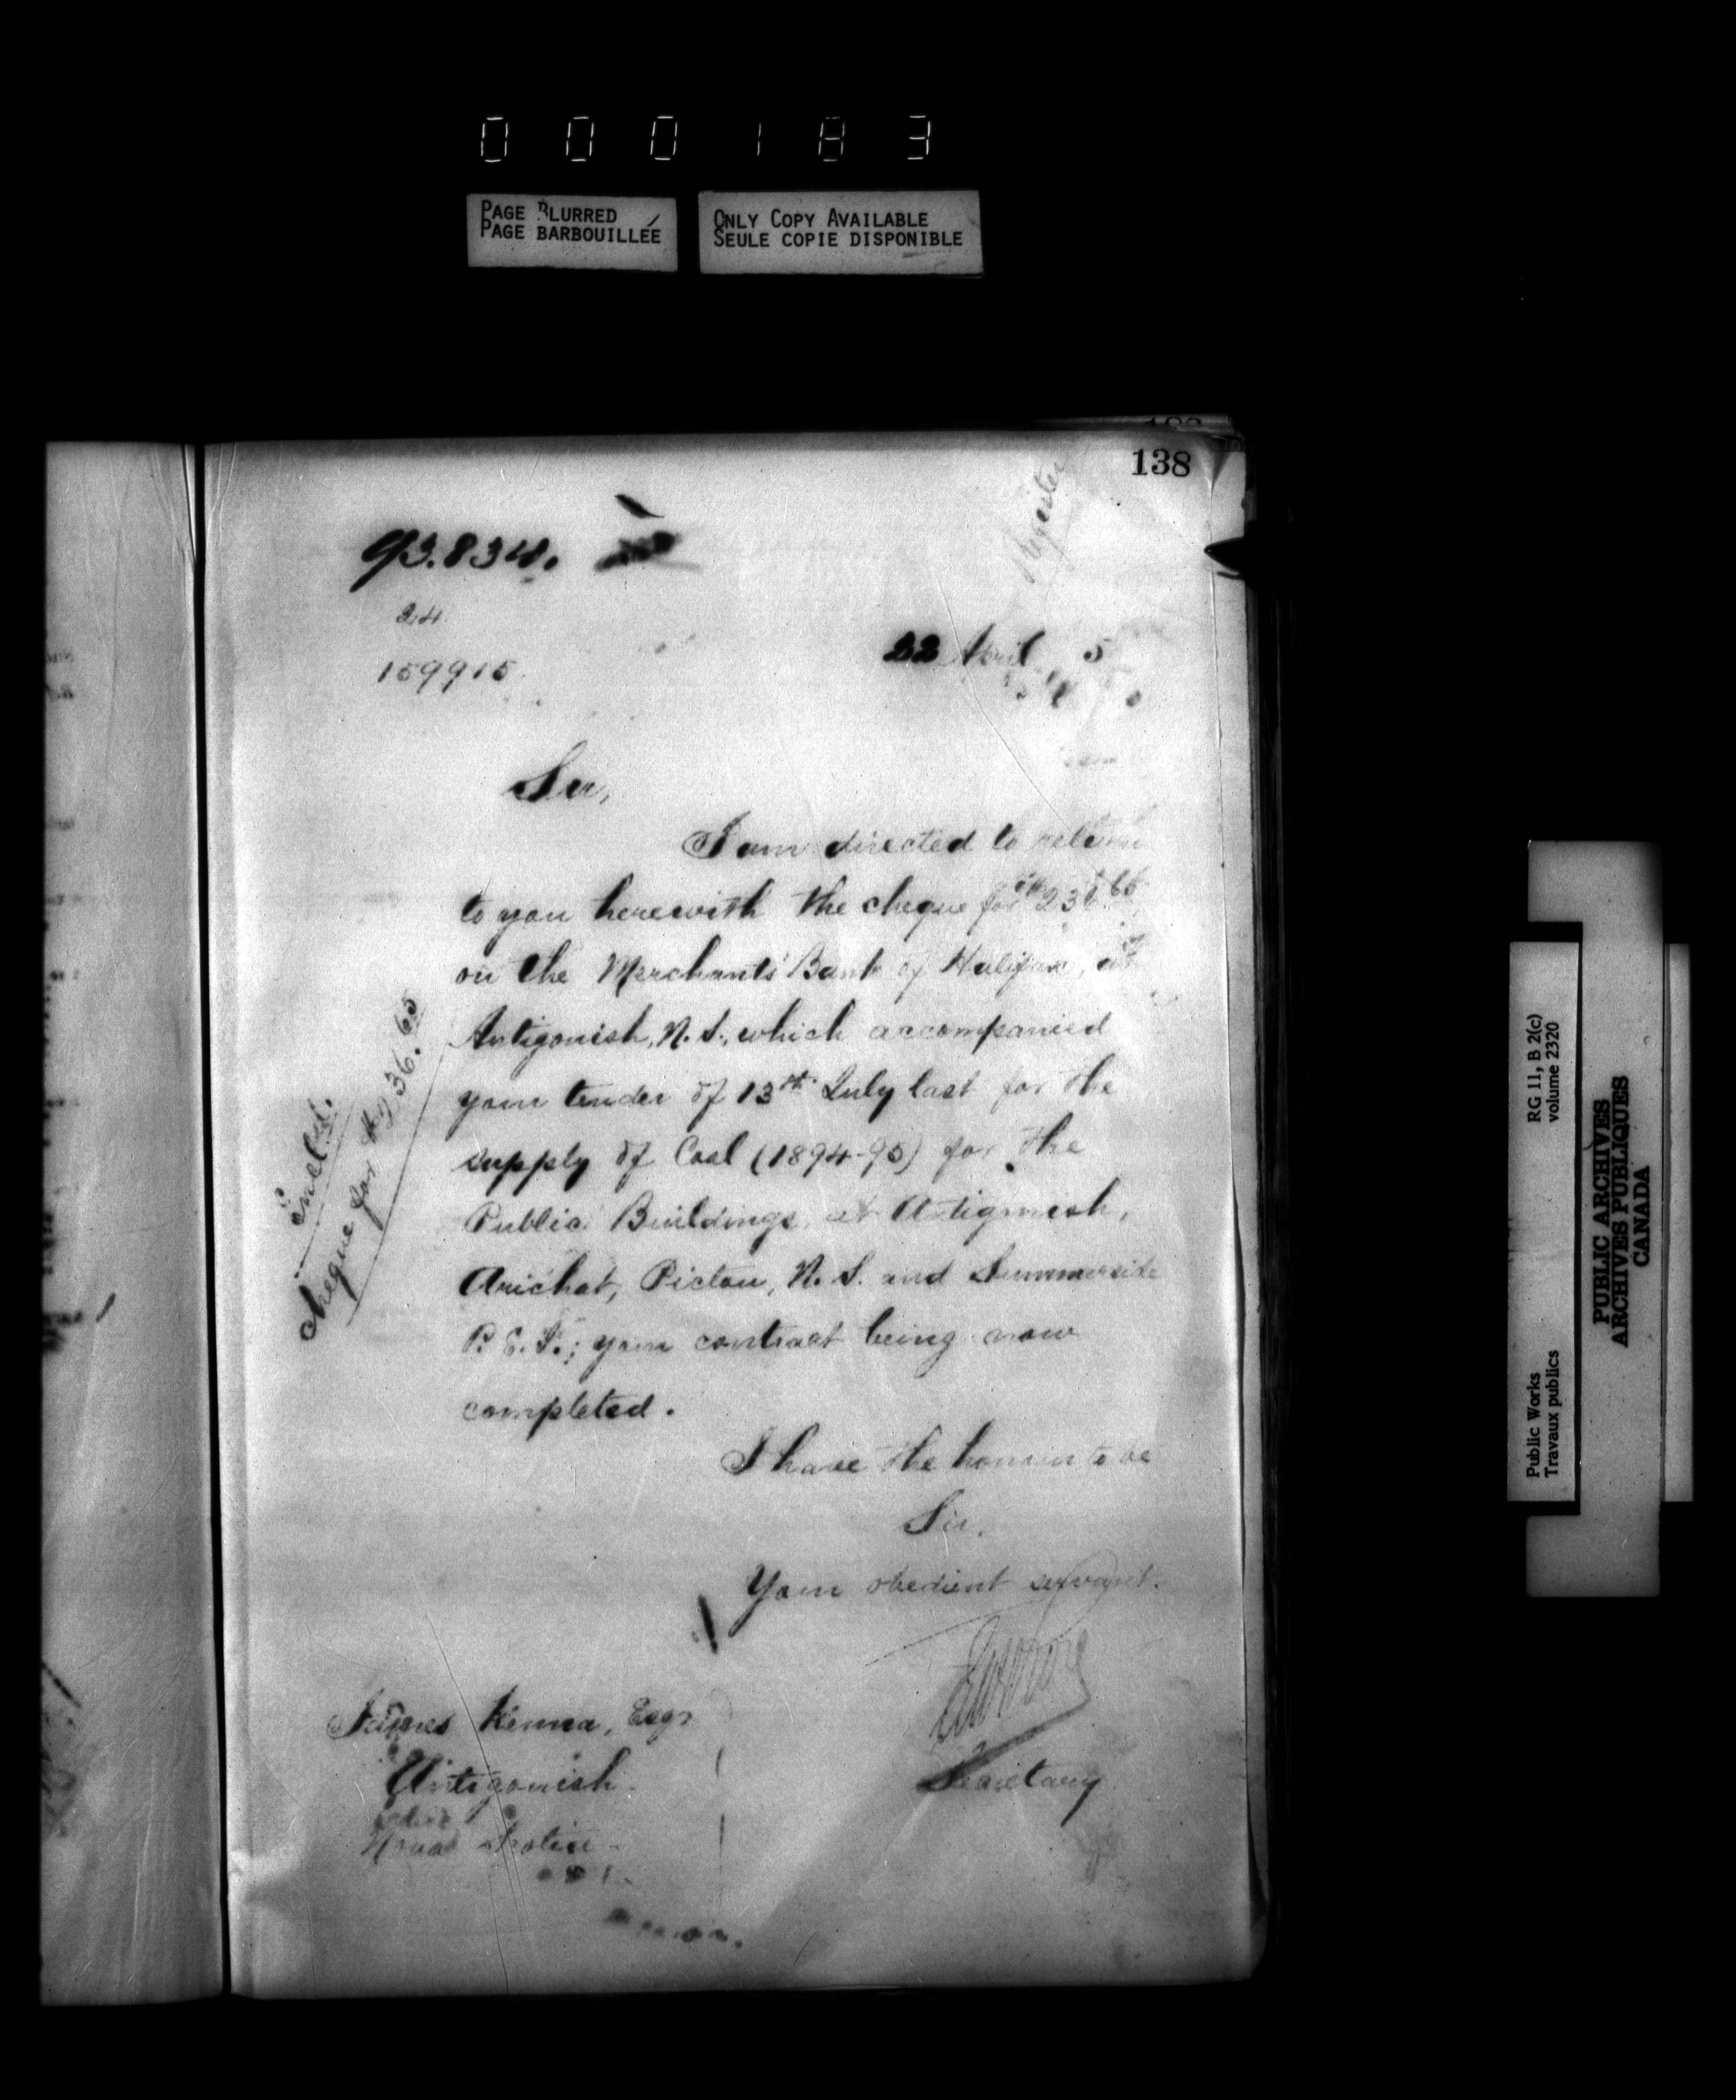 0 0 0 1 8 3
PAGE BLURRED
PAGE BARBOUILLÉE
ONLY COPY AVAILABLE
SEULE COPIE DISPONIBLE
138
Register
93.834.
24
159915
22 April 5
Sir,
I am directed to return
to you herewith the cheque for $236.65
on the Merchants' Bank of Halifax, at
Antigonish, N.S., which accompanied
your tender of 13th July last for the
supply of Coal (1894-95) for the
Public Buildings at Antigonish,
Arichat, Pictou, N.S. and Summerside
P.E.I.; your contract being now
completed.
I have the honour to be
Sir,
Your obedient servant.
Secretary
James Kenna, Esqr
Antigonish
Nova Scotia
Encld.
Cheque for $236.65
RG 11, B 2(c)
volume 2320
Public Works
Travaux publics
PUBLIC ARCHIVES
ARCHIVES PUBLIQUES
CANADA